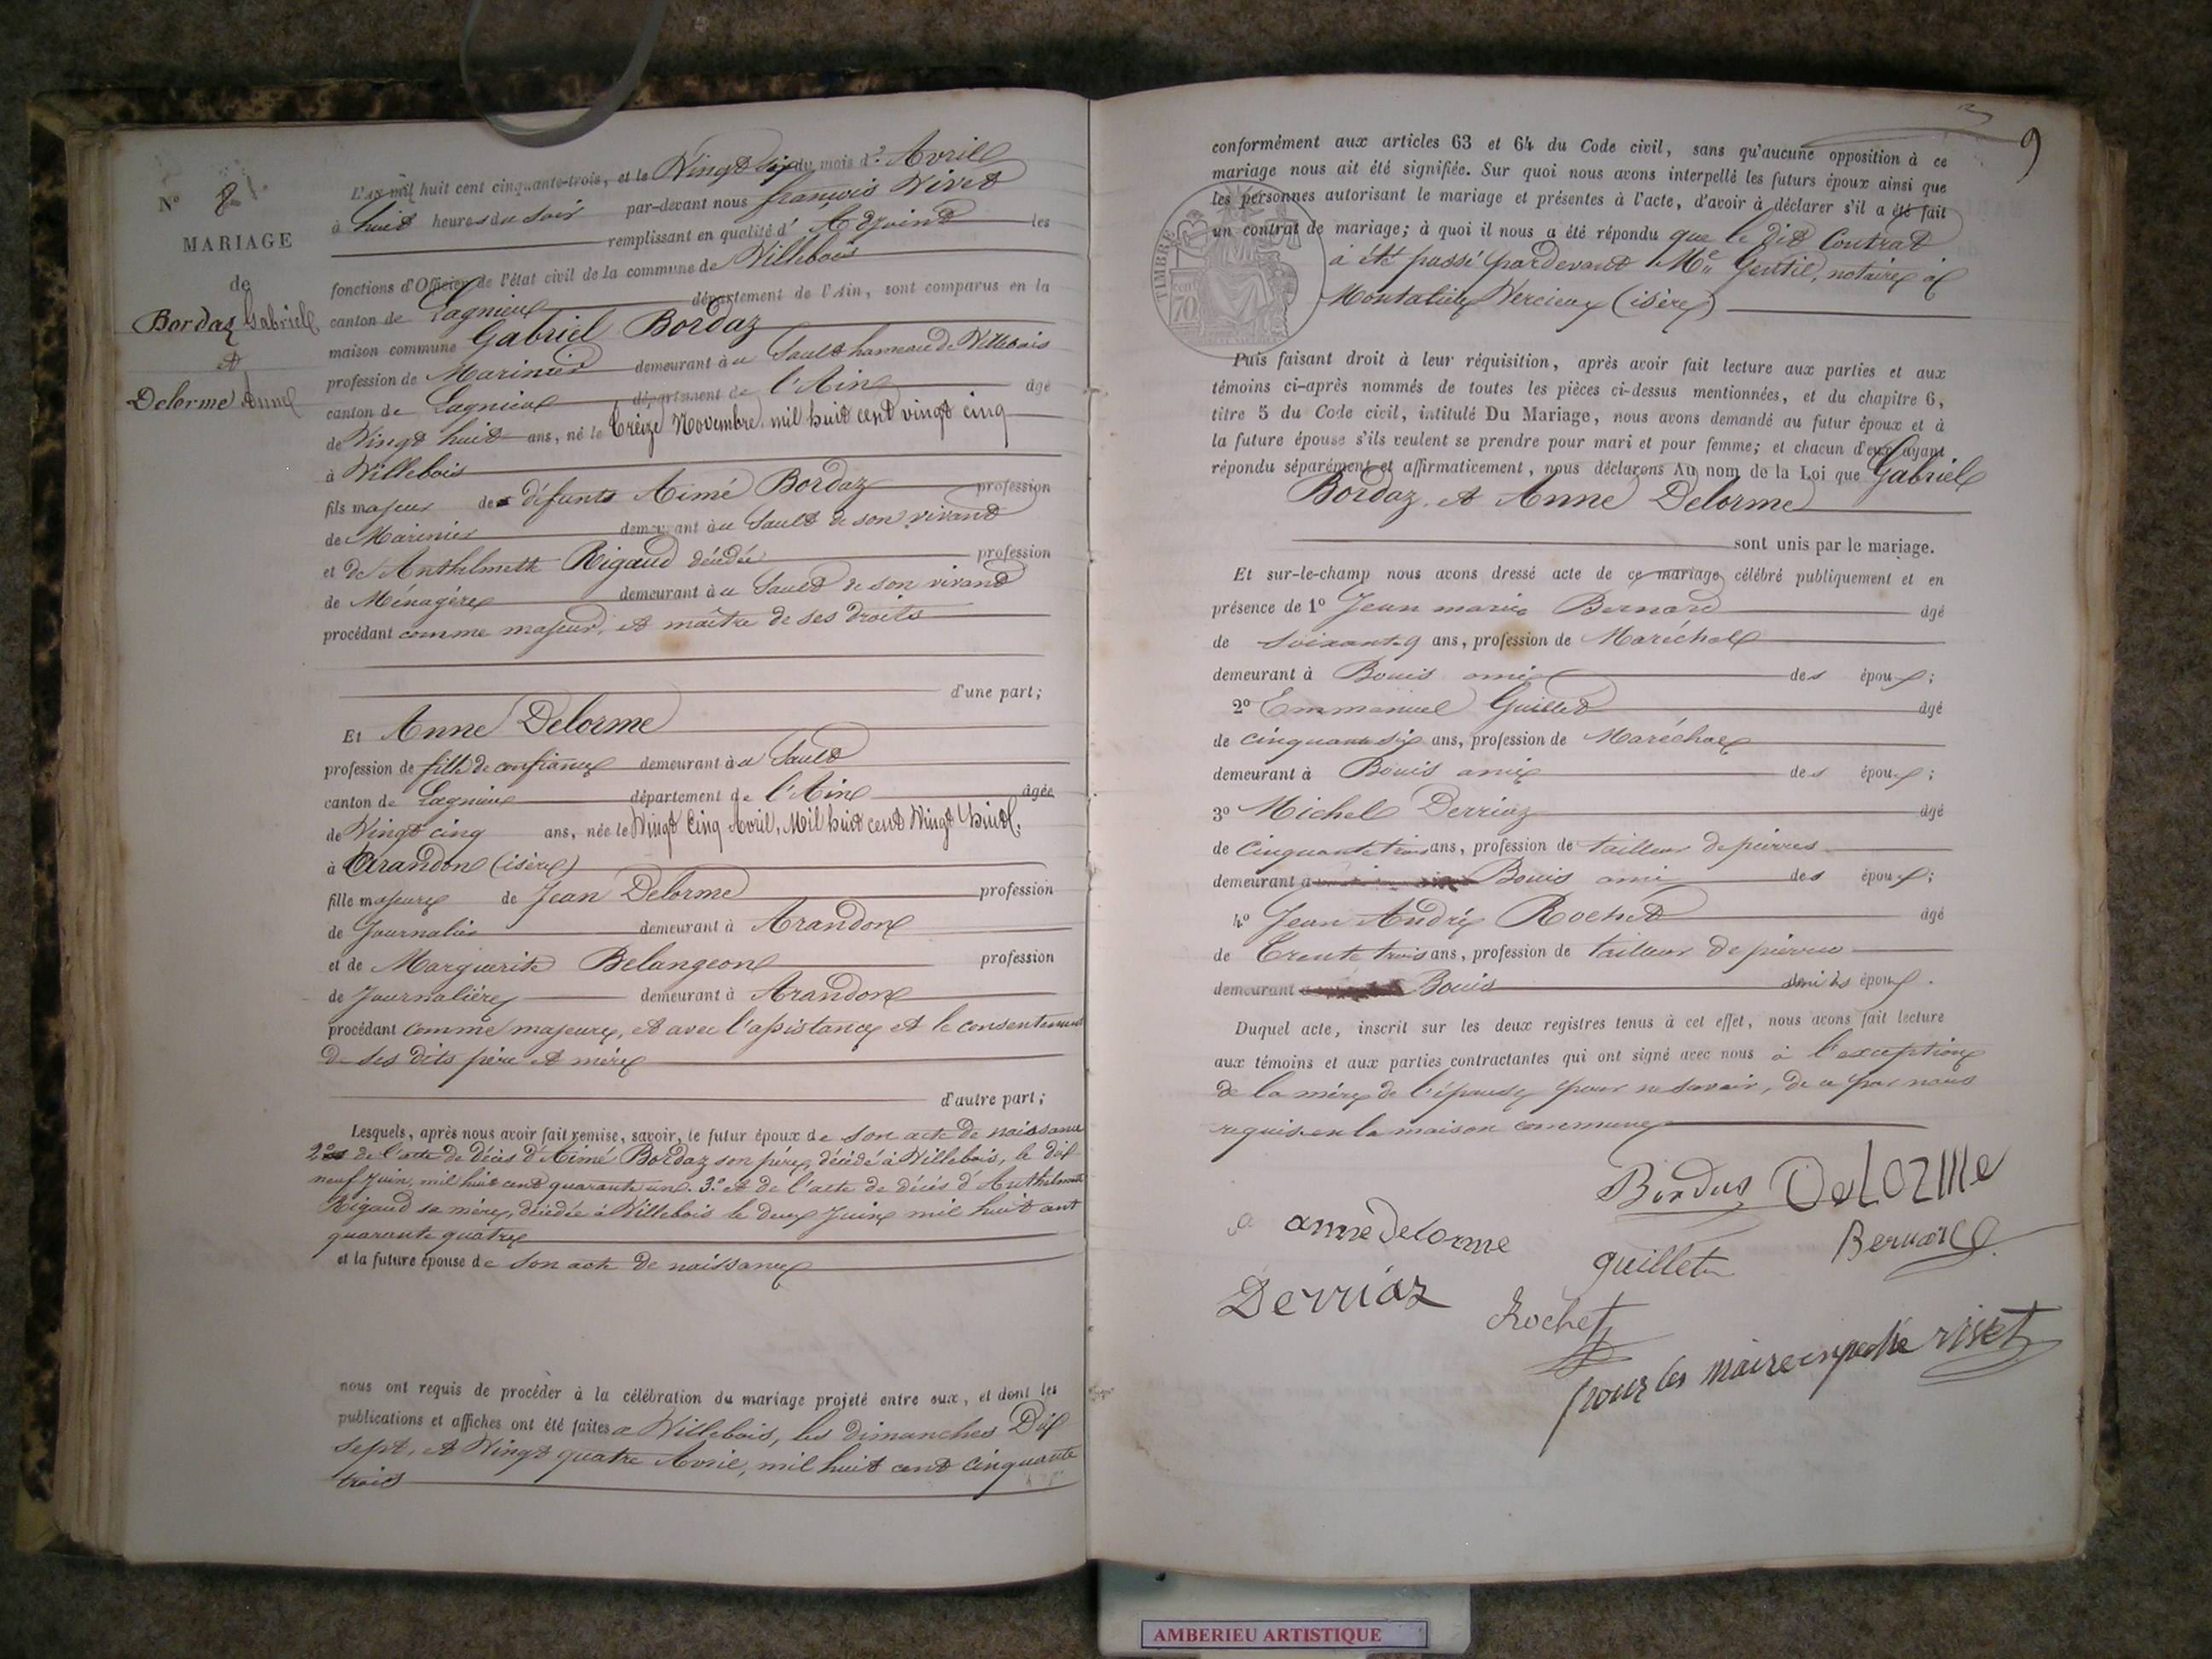 N° 8
MARIAGE
de
Bordaz Gabriel
et
Delorme Anne
L'an mil huit cent cinquante-trois, et le Vingt six du mois d'Avril
à huit heures du soir par-devant nous françois Rivet
remplissant en qualité d'Adjoint les
fonctions d'Officier de l'état civil de la commune de Villebois
canton de Lagnieu département de l'Ain, sont comparus en la
maison commune Gabriel Bordaz
profession de Marinier demeurant à u Sault hameau de Villebois
canton de Lagnieux département de l'Ain âgé
de Vingt huit ans, né le treize Novembre mil huit cent vingt cinq
à Villebois
fils majeur de défunts Aimé Bordaz profession
de Marinier demeurant àu Sault de son vivant
et de Anthelmette Rigaud décédée profession
de Ménagère demeurant àu Sault de son vivant
procédant comme majeur, et maître de ses droits
d'une part;
Et Anne Delorme
profession de fille de confiance demeurant àu Sault
canton de Lagnieux département de l'Ain âgée
de Vingt cinq ans, née le Vingt Cinq Avril, Mil huit cent Vingt huit,
à Arandon (isère)
fille majeure de Jean Delorme profession
de Journalier demeurant à Arandon
et de Marguerite Belangeon profession
de Journalière demeurant à Arandon
procédant comme majeure, et avec l'assistance et le consentement
de ses dits père et mère
d'autre part;
Lesquels, après nous avoir fait remise, savoir, le futur époux de son acte de naissance
2° de l'acte de décès d'Aimé Bordaz son père, décédé à Villebois, le dix
neuf Juin, mil huit cent quarante un. 3° et de l'acte de décès d'Anthelmette
Rigaud sa mère, décédée à Villebois le deux Juin mil huit cent
quarante quatre
et la future épouse de son acte de naissance
nous ont requis de procéder à la célébration du mariage projeté entre eux, et dont les
publications et affiches ont été faites a Villebois, les dimanches Dix
sept, et Vingt quatre Avril, mil huit cent Cinquante
trois
9
conformément aux articles 63 et 64 du Code civil, sans qu'aucune opposition à ce
mariage nous ait été signifiée. Sur quoi nous avons interpellé les futurs époux ainsi que
les personnes autorisant le mariage et présentes à l'acte, d'avoir à déclarer s'il a été fait
un contrat de mariage; à quoi il nous a été répondu que le dit Contrat
à été passé pardevant Me Gentil, notaire à
Montalieu Vercieux (isère)
TIMBRE
70
Puis faisant droit à leur réquisition, après avoir fait lecture aux parties et aux
témoins ci-après nommés de toutes les pièces ci-dessus mentionnées, et du chapitre 6,
titre 5 du Code civil, intitulé Du Mariage, nous avons demandé au futur époux et à
la future épouse s'ils veulent se prendre pour mari et pour femme; et chacun d'eux ayant
répondu séparément et affirmativement, nous déclarons Au nom de la Loi que Gabriel
Bordaz, et Anne Delorme
sont unis par le mariage.
Et sur-le-champ nous avons dressé acte de ce mariage célébré publiquement et en
présence de 1° Jean marie Bernard âgé
de soixante9 ans, profession de Maréchal
demeurant à Bouis ami des époux;
2° Emmanuel Guillet âgé
de cinquante six ans, profession de Maréchal
demeurant à Bouis ami des époux;
3° Michel Derriaz âgé
de Cinquante trois ans, profession de tailleur de pierres
demeurant a Bouis ami des époux;
4° Jean André Rochet âgé
de Trente trois ans, profession de tailleur de pierres
demeurant Bouis ami des époux.
Duquel acte, inscrit sur les deux registres tenus à cet effet, nous avons fait lecture
aux témoins et aux parties contractantes qui ont signé avec nous à l'exception
de la mère de l'épouse pour ne savoir, de ce par nous
requise en la maison commune
Bordas Delorme
anne Delorme guillet Bernard
Derriaz Rochet
pour les maire enpeché rivet
AMBERIEU ARTISTIQUE